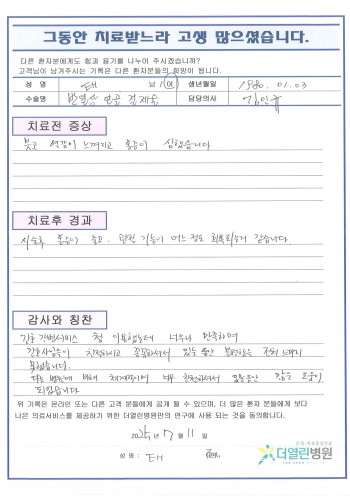 그동안 치료받느라 고생 많으셨습니다.
다른 환자분에게도 힘과 용기를 나누어 주시겠습니까?
고객님이 남겨주시는 기록은 다른 환자분들의 희망이 됩니다.
성 명 태 남 / 여 생년월일 1980. 01. 03
수술명 반월상 연골 절제술 담당의사 김인규
치료전 증상
붓고 열감이 느껴지고 통증이 심했습니다
치료후 경과
시술후 통증이 줄고, 관절 기능이 어느 정도 회복되는거 같습니다.
감사와 칭찬
간호 간병서비스 첨 이용했는데 너무나 만족하며
간호사님들이 친절하시고 꼼꼼하셔서 있는 동안 불편함을 전혀 느끼지
못했습니다.
다른 병원에 비해 체계적이며 너무 친절하셔서 있는동안 많은 도움이
되었습니다
위 기록은 온라인 또는 다른 고객 분들에게 공개 될 수 있으며, 더 많은 환자 분들에게 보다
나은 의료서비스를 제공하기 위한 더열린병원만의 연구에 사용 되는 것을 동의합니다.
2025년 7월 11일
성 명 : 태
더열린병원